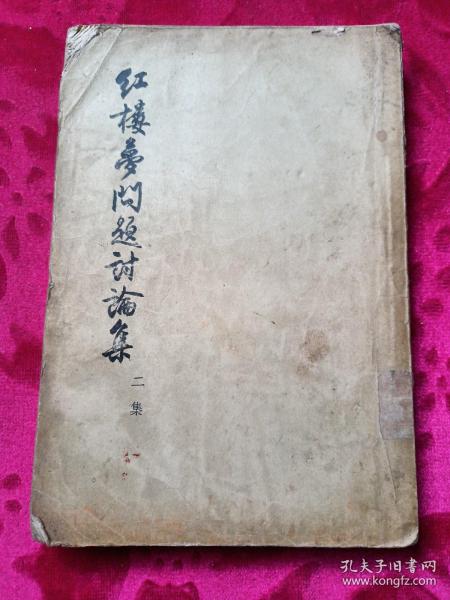 红楼夢问题討論集
二集
孔夫子旧书网
www.kongfz.com